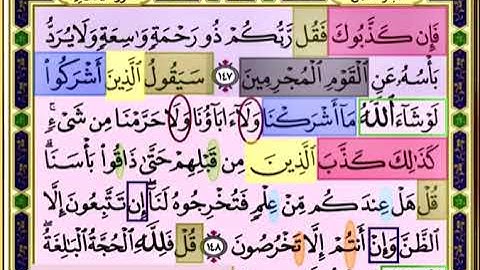 فَإِن كَذَّبُوكَ فَقُل رَّبُّكُمْ ذُو رَحْمَةٍ وَٰسِعَةٍ وَلَا يُرَدُّ
بَأْسُهُۥ عَنِ ٱلْقَوْمِ ٱلْمُجْرِمِينَ ١٤٧ سَيَقُولُ ٱلَّذِينَ أَشْرَكُوا۟
لَوْ شَآءَ ٱللَّهُ مَآ أَشْرَكْنَا وَلَآ ءَابَآؤُنَا وَلَا حَرَّمْنَا مِن شَىْءٍ ۚ
كَذَٰلِكَ كَذَّبَ ٱلَّذِينَ مِن قَبْلِهِمْ حَتَّىٰ ذَاقُوا۟ بَأْسَنَا ۗ
قُلْ هَلْ عِندَكُم مِّنْ عِلْمٍ فَتُخْرِجُوهُ لَنَآ ۖ إِن تَتَّبِعُونَ إِلَّا
ٱلظَّنَّ وَإِنْ أَنتُمْ إِلَّا تَخْرُصُونَ ١٤٨ قُلْ فَلِلَّهِ ٱلْحُجَّةُ ٱلْبَٰلِغَةُ ۖ